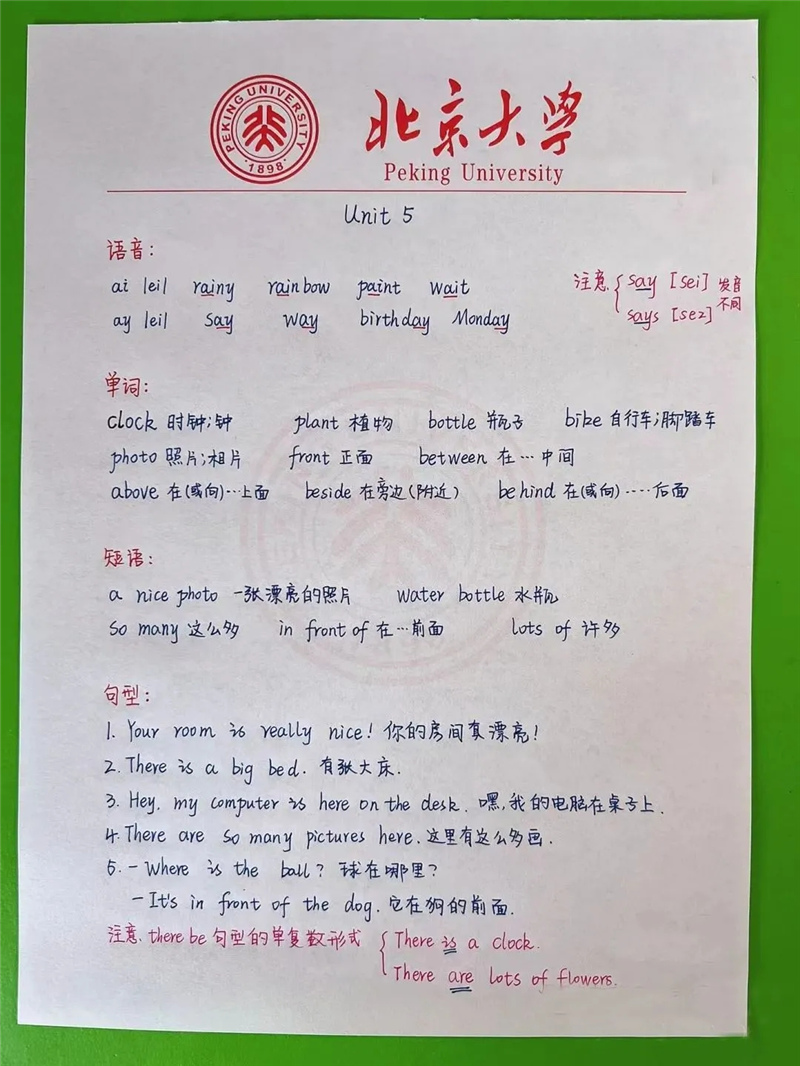 PEKING UNIVERSITY
·1898·
北京大学
Peking University
Unit 5
语音:
ai leil rainy rainbow paint wait
ay leil say way birthday Monday
注意 { say [sei] says [sez] 发音不同
单词:
clock 时钟;钟 plant 植物 bottle 瓶子 bike 自行车;脚踏车
photo 照片;相片 front 正面 between 在…中间
above 在(或向)…上面 beside 在旁边(附近) behind 在(或向)……后面
短语:
a nice photo 一张漂亮的照片 water bottle 水瓶
so many 这么多 in front of 在…前面 lots of 许多
句型:
1. Your room is really nice! 你的房间真漂亮!
2. There is a big bed. 有张大床.
3. Hey, my computer is here on the desk. 嘿,我的电脑在桌子上.
4. There are so many pictures here. 这里有这么多画.
5. - Where is the ball? 球在哪里?
- It's in front of the dog. 它在狗的前面.
注意. there be 句型的单复数形式 { There is a clock.
There are lots of flowers.